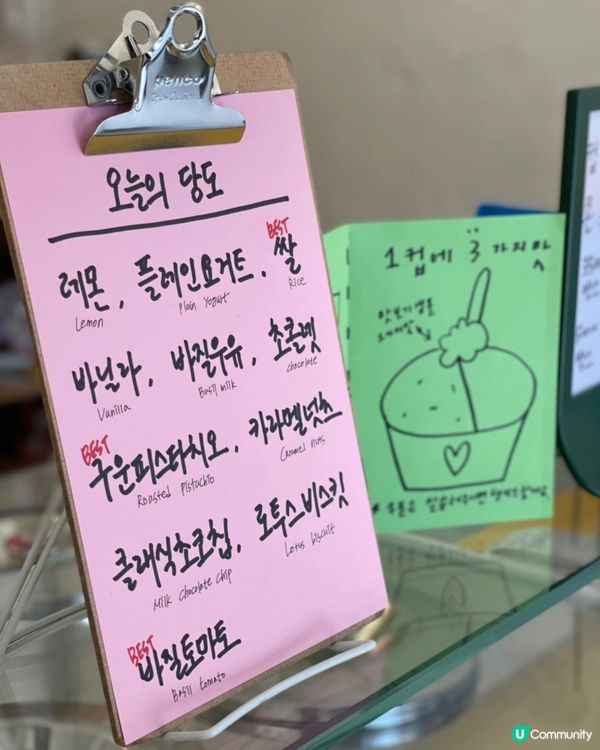 penco
오늘의 당도
BEST
레몬, 플레인요거트, 쌀
Lemon Plain Yogurt Rice
바닐라, 바질우유, 초콜렛
Vanilla Basil milk chocolate
BEST
구운피스타치오, 카라멜넛츠
Roasted Pistachio Caramel nuts
클래식초코칩, 로투스비스킷
Milk chocolate chip Lotus biscuit
BEST
바질토마토
Basil tomato
1컵에 3가지맛
U Community